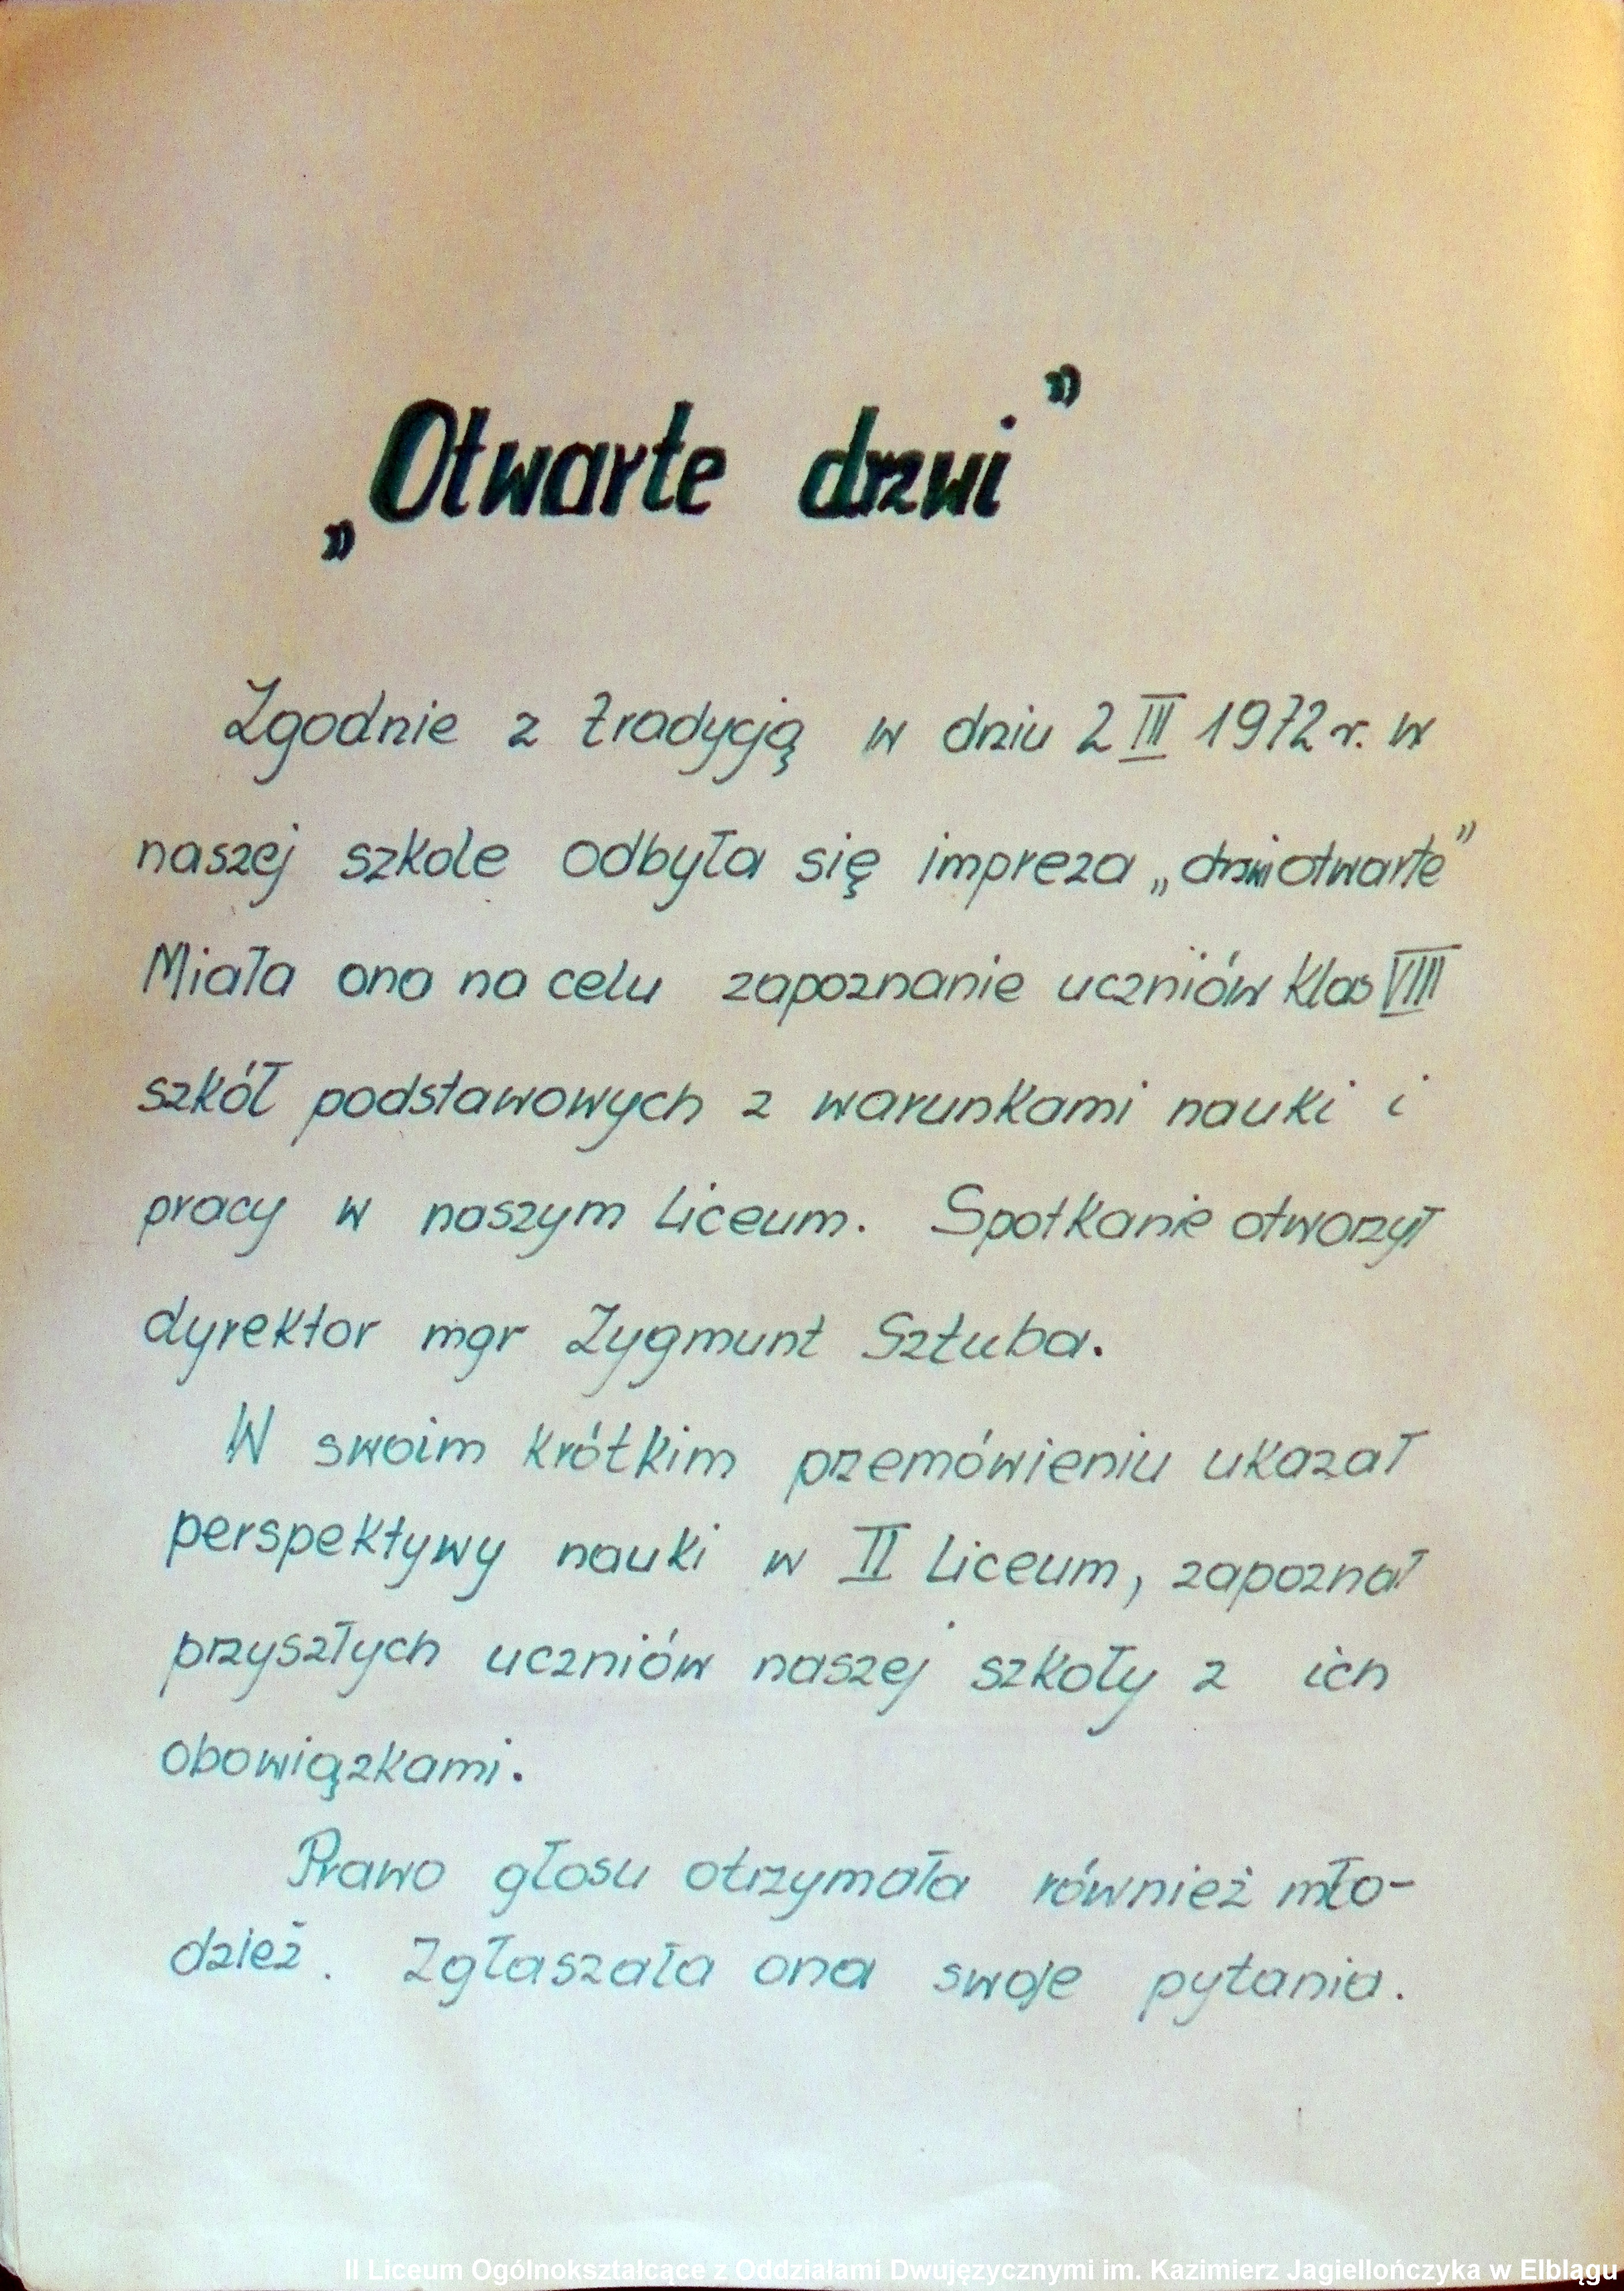 „Otwarte drzwi”
Zgodnie z tradycją w dniu 2 III 1972 r. w
naszej szkole odbyła się impreza „drzwi otwarte”
Miała ona na celu zapoznanie uczniów klas VIII
szkół podstawowych z warunkami nauki i
pracy w naszym Liceum. Spotkanie otworzył
dyrektor mgr Zygmunt Sztuba.
W swoim krótkim przemówieniu ukazał
perspektywy nauki w II Liceum, zapoznał
przyszłych uczniów naszej szkoły z ich
obowiązkami.
Prawo głosu otrzymała również mło-
dzież. Zgłaszała ona swoje pytania.
II Liceum Ogólnokształcące z Oddziałami Dwujęzycznymi im. Kazimierz Jagiellończyka w Elblągu